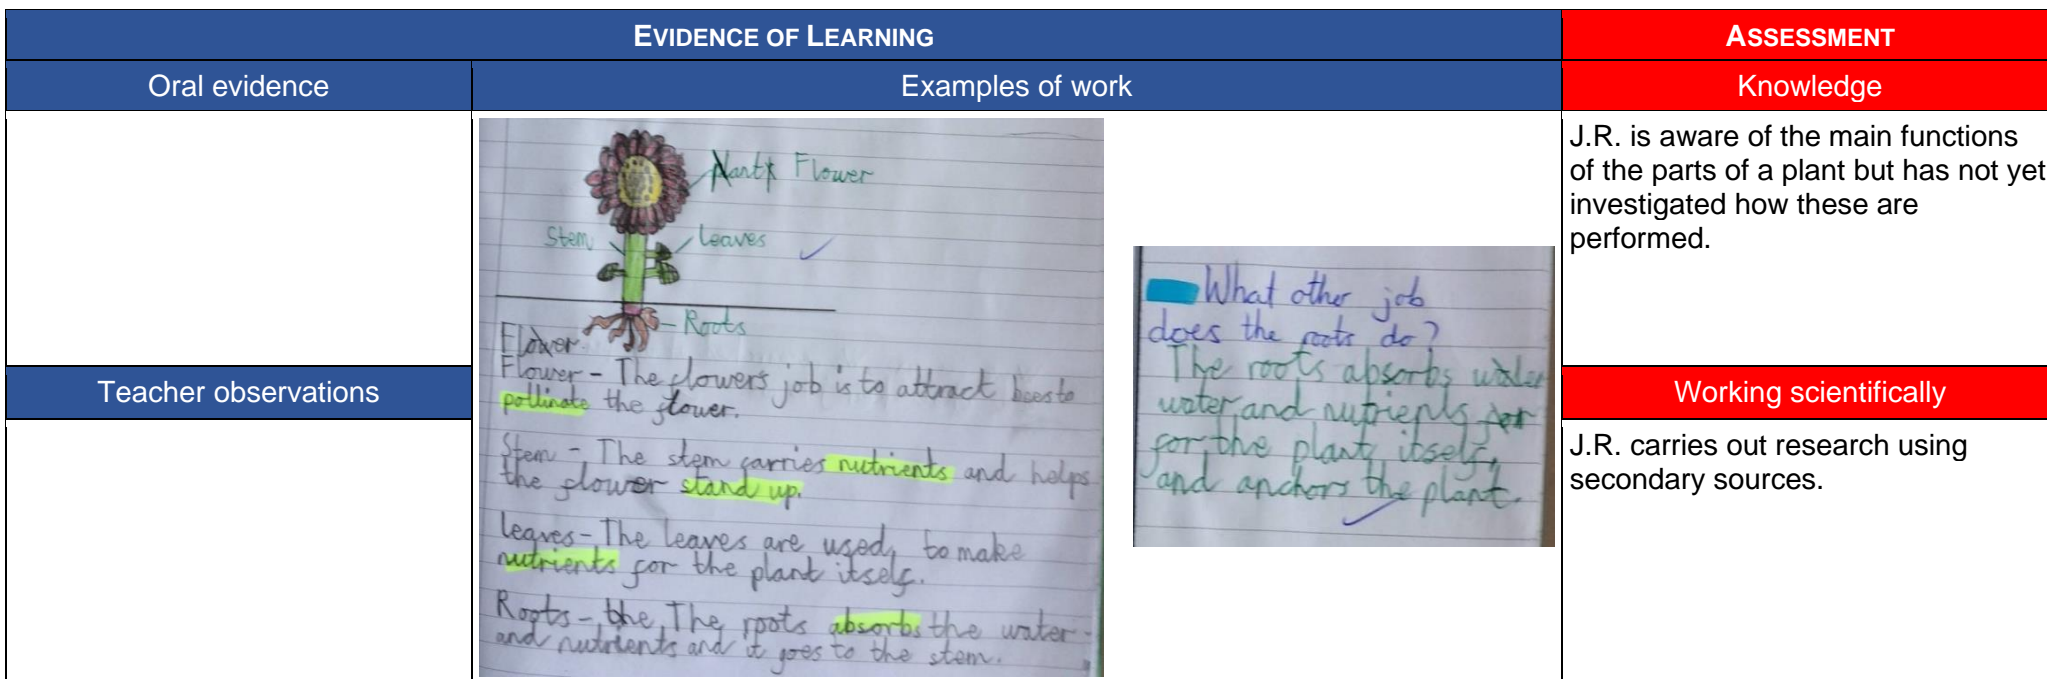 EVIDENCE OF LEARNING
ASSESSMENT
Oral evidence
Examples of work
Knowledge
Flower
Stem
Leaves
Roots
Flower.
Flower - The flowers job is to attract bees to
pollinate the flower.
Stem - The stem carries nutrients and helps
the flower stand up.
Leaves - The leaves are used, to make
nutrients for the plant itself.
Roots - the, The roots absorbs the water
and nutrients and it goes to the stem.
What other job
does the roots do?
The roots absorbs water
water, and nutrients for
for the plant itself,
and anchors the plant.
J.R. is aware of the main functions
of the parts of a plant but has not yet
investigated how these are
performed.
Teacher observations
Working scientifically
J.R. carries out research using
secondary sources.